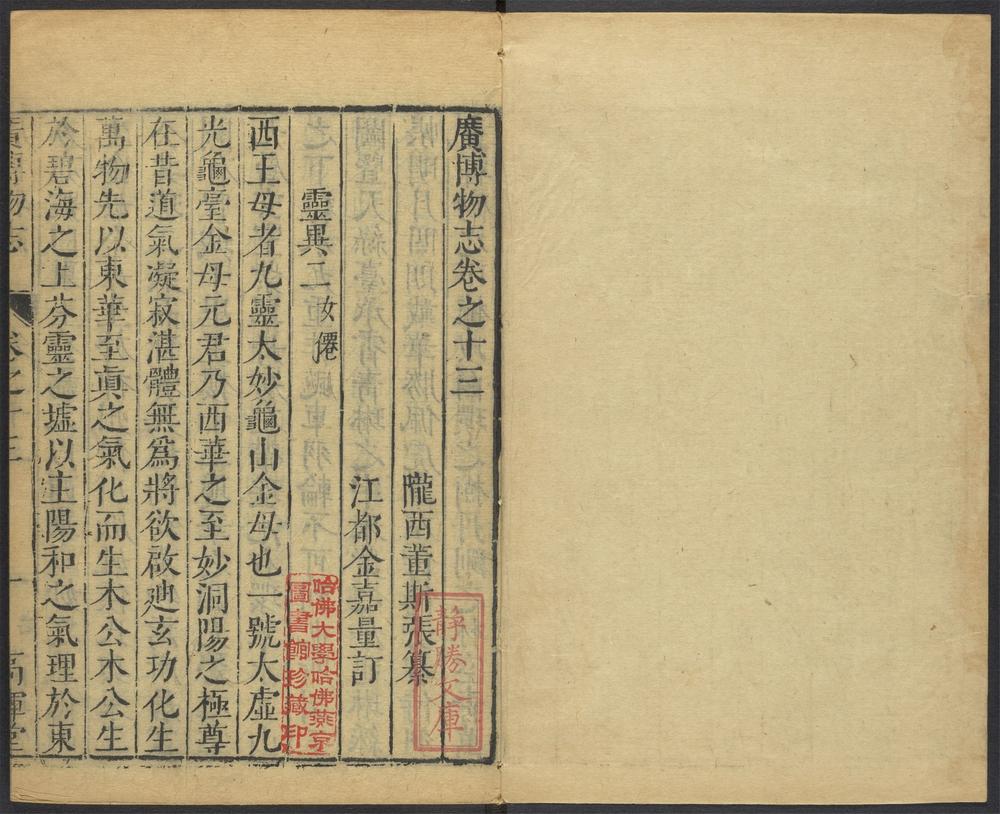 廣博物志卷之十三
隴西董斯張纂
江都金嘉量訂
靈異二 女僊
西王母者九靈太妙龜山金母也一號太虛九
光龜臺金母元君乃西華之至妙洞陽之極尊
在昔道氣凝寂湛體無爲將欲啟廸玄功化生
萬物先以東華至眞之氣化而生木公木公生
於碧海之上芬靈之墟以主陽和之氣理於東
廣博物志
卷之十三
一
高暉堂
靜勝文庫
哈佛大學哈佛燕京
圖書館珍藏印